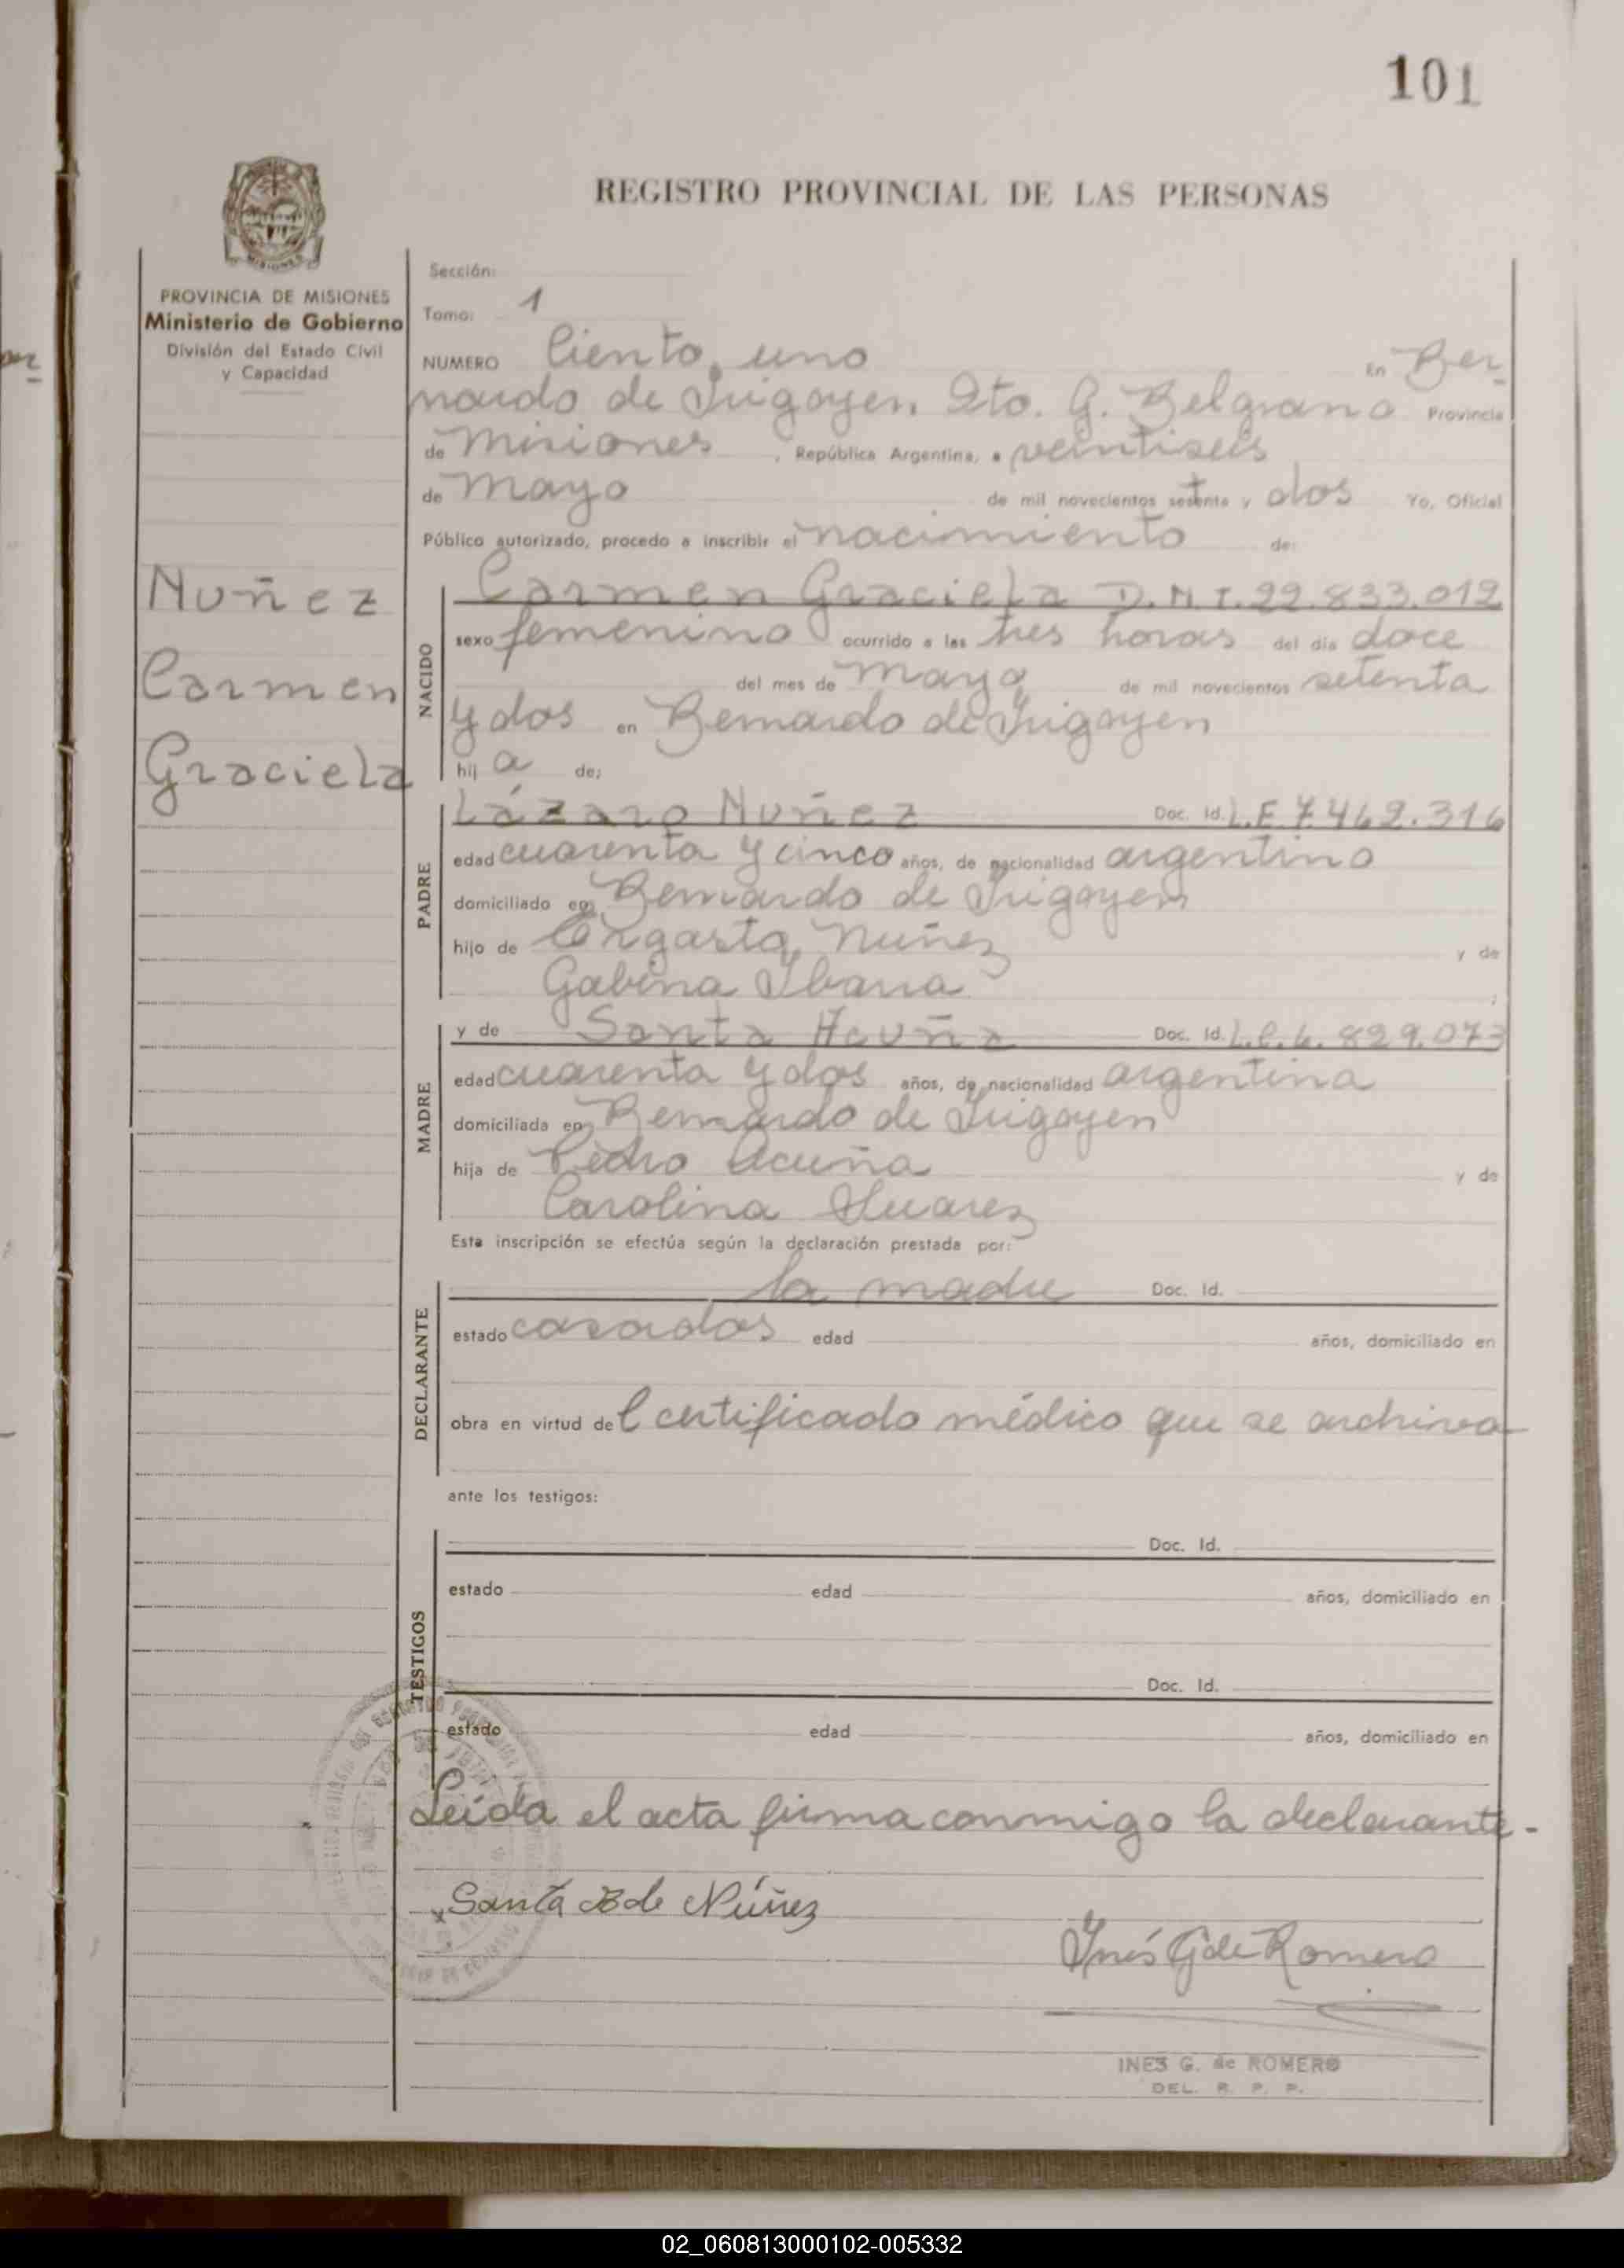 101
REGISTRO PROVINCIAL DE LAS PERSONAS
MISIONES
PROVINCIA DE MISIONES
Ministerio de Gobierno
División del Estado Civil
y Capacidad
Nuñez
Carmen
Graciela
Sección:
Tomo: 1
NUMERO Ciento uno En Ber-
nardo de Irigoyen, Dto. G. Belgrano Provincia
de Misiones, República Argentina, a veintiseis
de Mayo de mil novecientos setenta y dos Yo, Oficial
Público autorizado, procedo a inscribir el nacimiento de:
NACIDO
Carmen Graciela D.N.I. 22.833.012
sexo femenino ocurrido a las tres horas del día doce
del mes de mayo de mil novecientos setenta
y dos en Bernardo de Irigoyen
hij a de:
PADRE
Lázaro Nuñez Doc. Id. L.E 7.462.316
edad cuarenta y cinco años, de nacionalidad argentino
domiciliado en Bernardo de Irigoyen
hijo de Nuñez y de
Gabina Ibarra
MADRE
y de Santa Acuña Doc. Id. L.C. 6.829.073
edad cuarenta y dos años, de nacionalidad argentina
domiciliada en Bernardo de Irigoyen
hija de Pedro Acuña y de
Carolina Suarez
Esta inscripción se efectúa según la declaración prestada por:
DECLARANTE
la madre Doc. Id.
estado casados edad años, domiciliado en
obra en virtud del certificado médico que se archiva
ante los testigos:
TESTIGOS
Doc. Id.
estado edad años, domiciliado en
Doc. Id.
estado edad años, domiciliado en
Leída el acta firma conmigo la declarante.-
x Santa de Núñez
Inés G de Romero
INES G. de ROMERO
DEL. R. P. P.
02_060813000102-005332